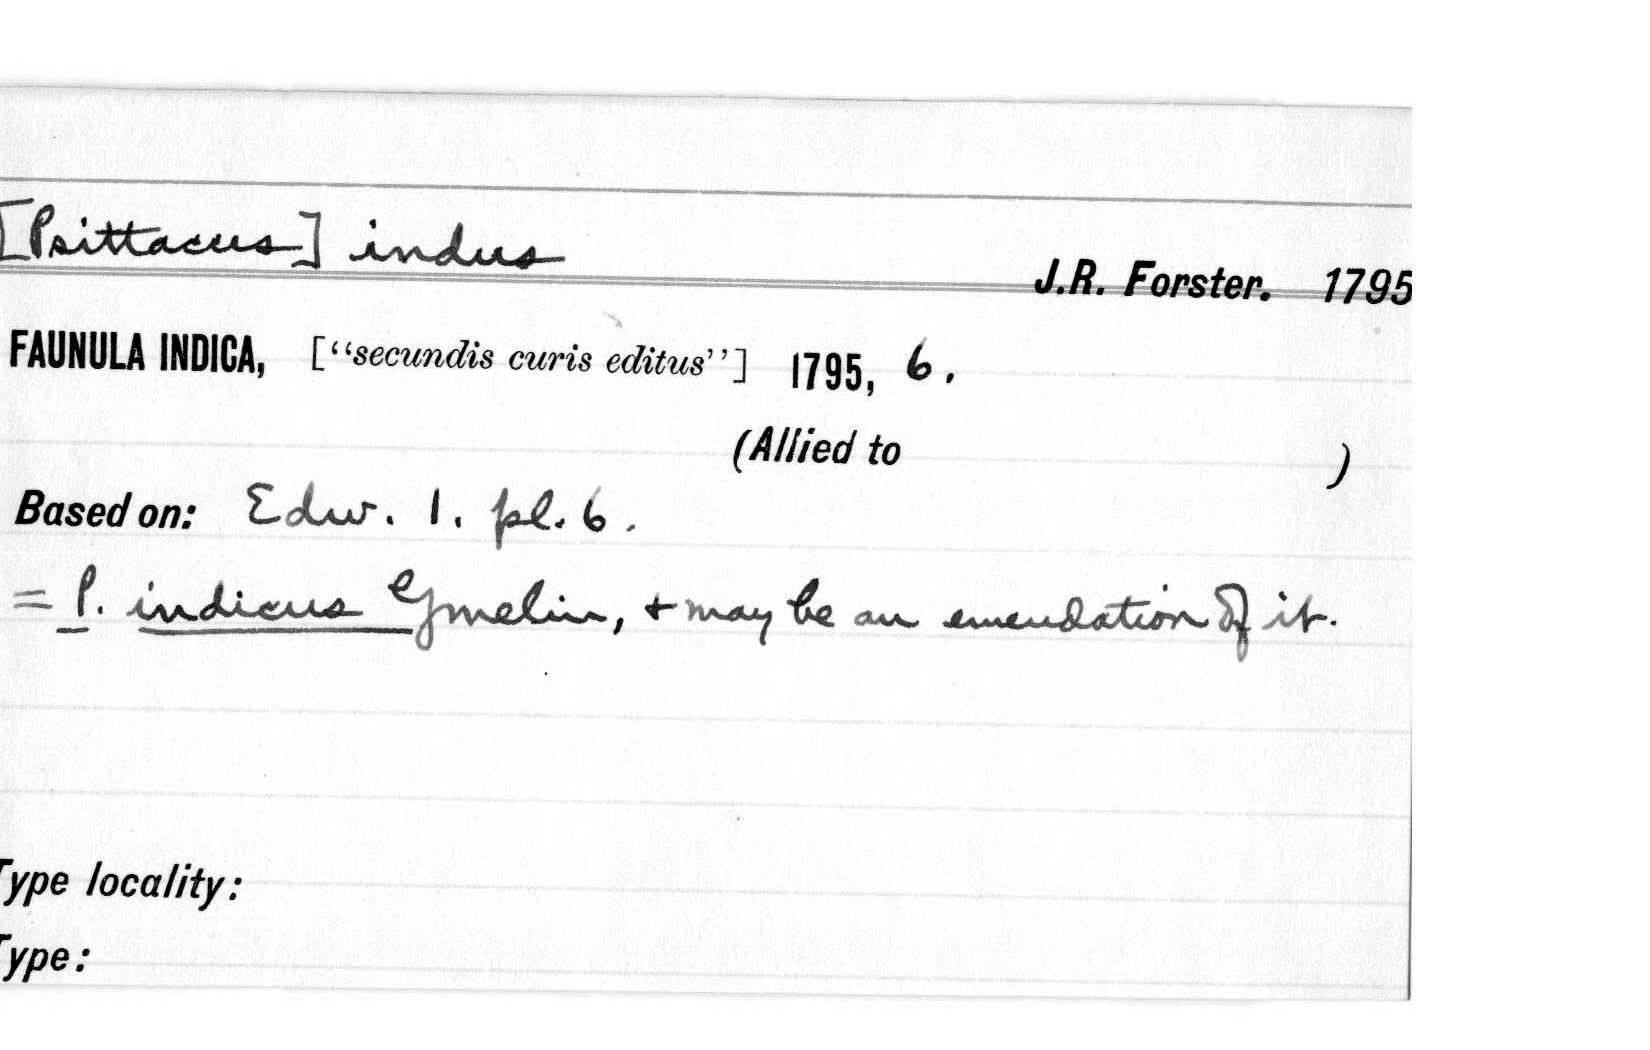 [Psittacus] indus
J.R. Forster. 1795
FAUNULA INDICA, [“secundis curis editus”] 1795, 6.
(Allied to )
Based on: Edw. 1. pl. 6.
= P. indicus Gmelin, + may be an emendation of it.
Type locality:
Type: